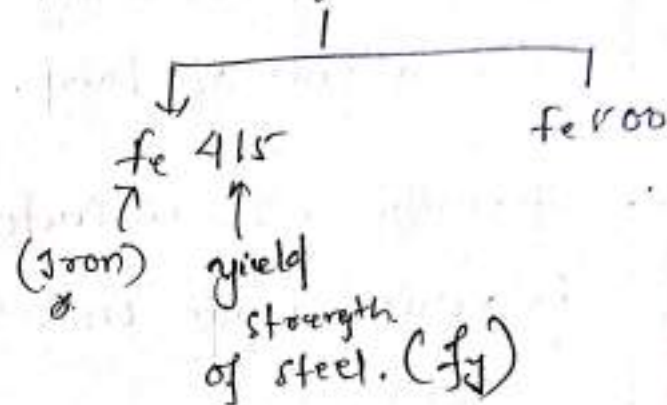 fe 415
fe 500
(Iron)
yield
strength
of steel. (fy)